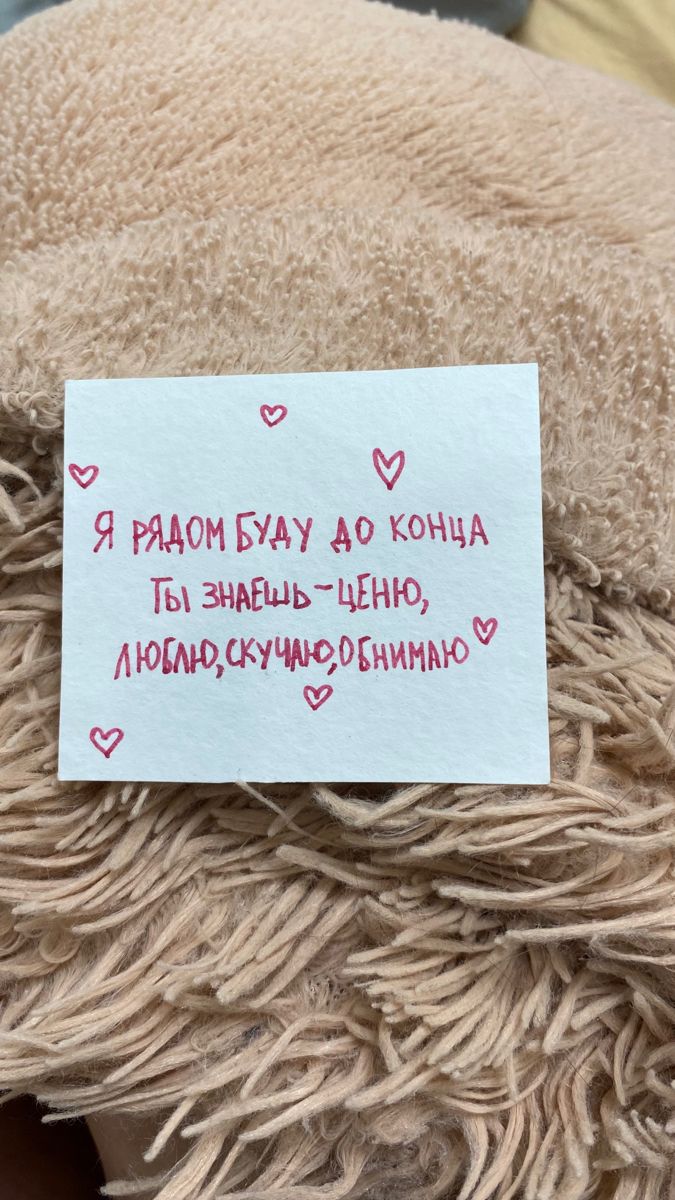 Я РЯДОМ БУДУ ДО КОНЦА
ТЫ ЗНАЕШЬ - ЦЕНЮ,
ЛЮБЛЮ, СКУЧАЮ, ОБНИМАЮ